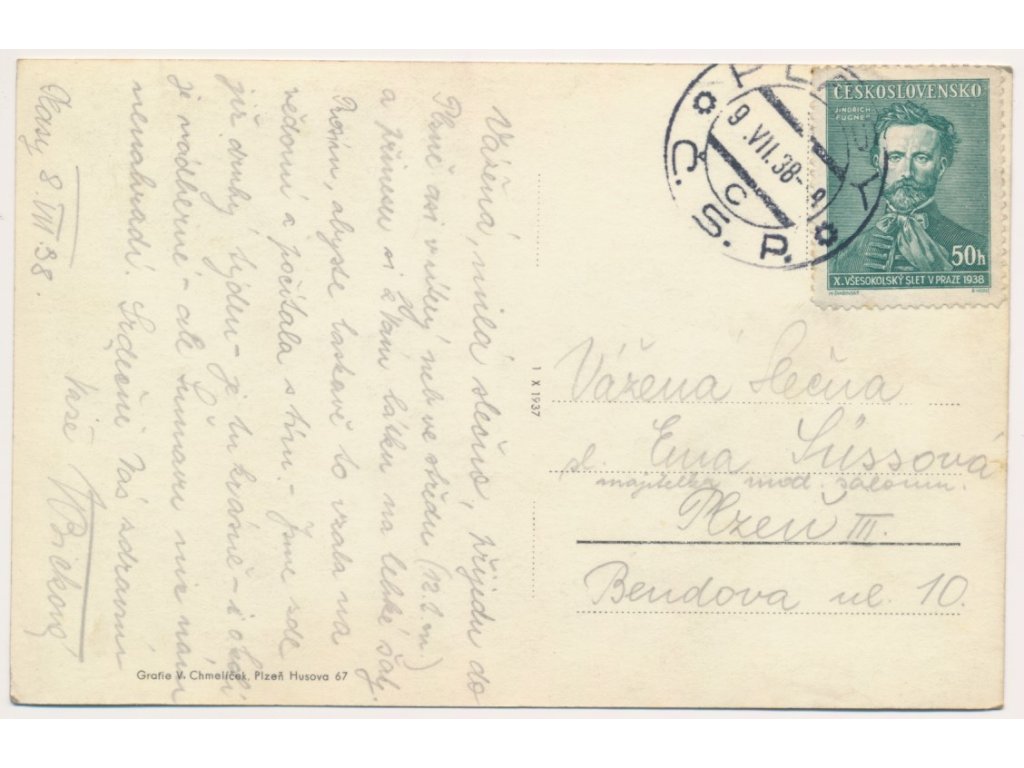 Vážená, milá slečno, přijedu do
Plzně asi v úterý neb ve středu (12. t. m.)
a přinesu si k Vám látku na lehké šaty.
Prosím, abyste laskavě to vzala na
vědomí a počítala s tím. – Jsme zde
již druhý týden – je tu krásně – i okolí
je nádherné – ale Šumavu nic nám
nenahradí. Srdečně Vás zdraví
Vaše
8. VII 38.
Grafie V. Chmelíček, Plzeň Husova 67
1 X 1937
9. VII. 38 –
Č. S. P.
C
ČESKOSLOVENSKO
JINDŘICH
FÜGNER
50h
X. VŠESOKOLSKÝ SLET V PRAZE 1938
Vážená slečna
sl. Ema Süssová
majitelka mod. salonu.
Plzeň III.
Bendova ul. 10.